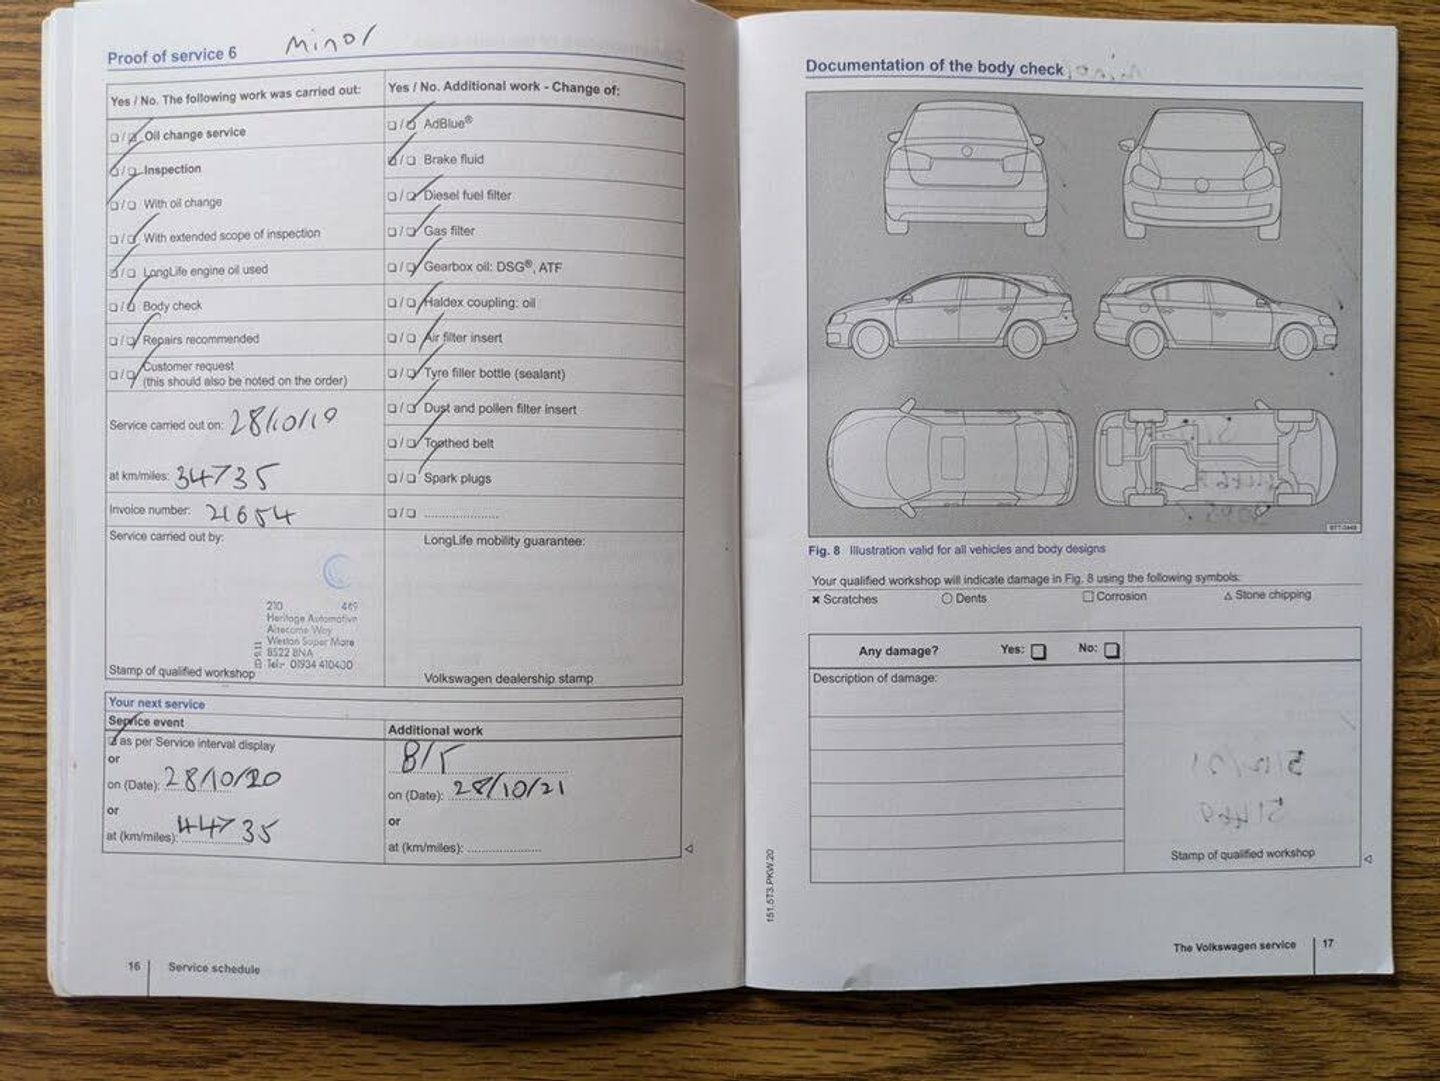 Proof of service 6 Minor
Yes / No. The following work was carried out:
☐/☑ Oil change service
☑/☐ Inspection
☑/☐ With oil change
☐/☑ With extended scope of inspection
☑/☐ LongLife engine oil used
☐/☑ Body check
☐/☑ Repairs recommended
☐/☑ Customer request
(this should also be noted on the order)
Service carried out on: 28/10/19
at km/miles: 34735
Invoice number: 21654
Service carried out by:
210 449
Heritage Automotive
Weston Super Mare
BS22 8NA
Tel:- 01934 410400
Stamp of qualified workshop
Yes / No. Additional work - Change of:
☐/☑ AdBlue®
☑/☐ Brake fluid
☐/☑ Diesel fuel filter
☐/☑ Gas filter
☐/☑ Gearbox oil: DSG®, ATF
☐/☑ Haldex coupling: oil
☐/☑ Air filter insert
☐/☑ Tyre filler bottle (sealant)
☐/☑ Dust and pollen filter insert
☐/☑ Toothed belt
☐/☑ Spark plugs
☐/☐ ....................
LongLife mobility guarantee:
Volkswagen dealership stamp
Your next service
Service event
☑ as per Service interval display
or
on (Date): 28/10/20
or
at (km/miles): 44735
Additional work
B/F
on (Date): 28/10/21
or
at (km/miles): ....................
16 Service schedule
Documentation of the body check
Fig. 8 Illustration valid for all vehicles and body designs
Your qualified workshop will indicate damage in Fig. 8 using the following symbols:
× Scratches ○ Dents □ Corrosion △ Stone chipping
Any damage? Yes: ☐ No: ☐
Description of damage:
Stamp of qualified workshop
151.5T3.PKW.20
The Volkswagen service 17